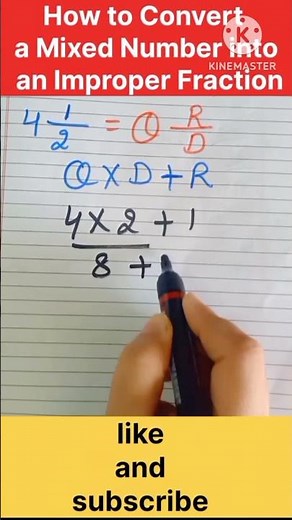 How to Convert
a Mixed Number into
an Improper Fraction
KINEMASTER
4 1/2 = Q R/D
Q × D + R
4 × 2 + 1
8 +
like
and
subscribe